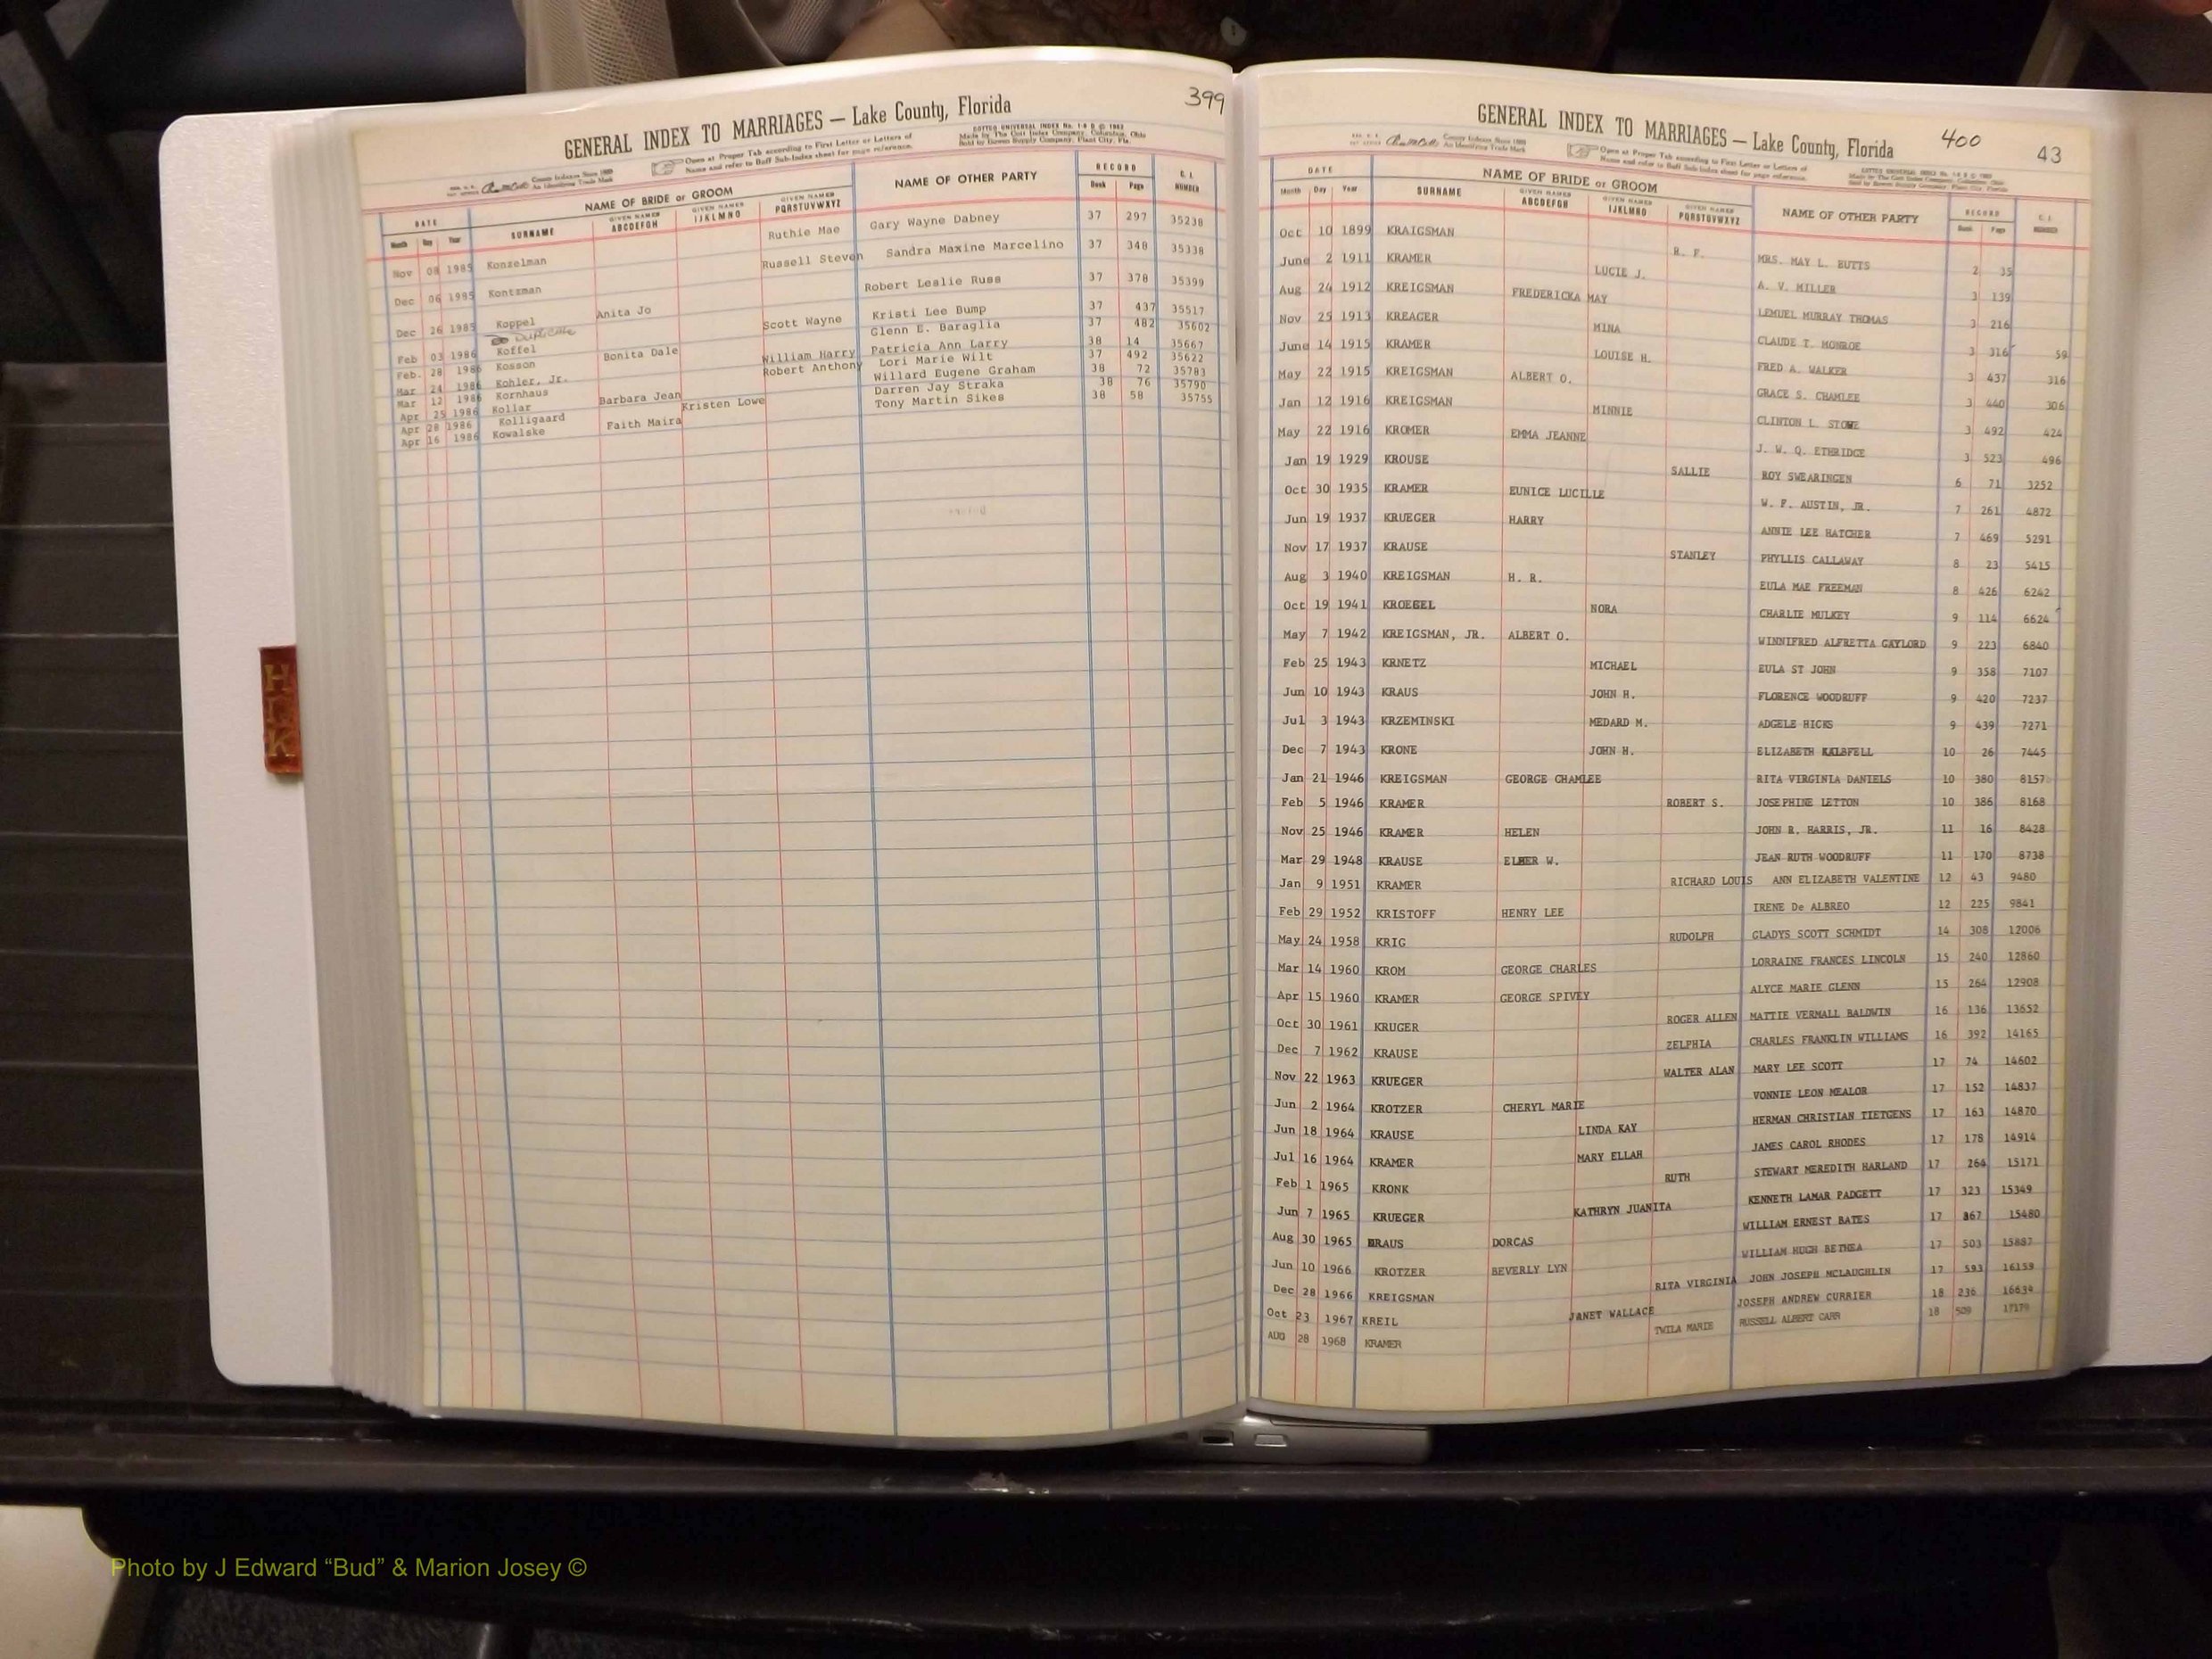 399
GENERAL INDEX TO MARRIAGES — Lake County, Florida
Open at Proper Tab according to First Letter or Letters of
Name and refer to Buff Sub-Index sheet for page reference.
COTTCO UNIVERSAL INDEX
Made by The Cott Index Company, Columbus, Ohio
Sold by Bowen Supply Company, Plant City, Fla.
County Indexes Since 1888
An Identifying Trade Mark
DATE NAME OF BRIDE or GROOM NAME OF OTHER PARTY RECORD C. I.
Month Day Year SURNAME GIVEN NAMES ABCDEFGH GIVEN NAMES IJKLMNO GIVEN NAMES PQRSTUVWXYZ Book Page NUMBER
Nov 08 1985 Konzelman Ruthie Mae Gary Wayne Dabney 37 297 35238
Dec 06 1985 Kontzman Russell Steven Sandra Maxine Marcelino 37 348 35338
Dec 26 1985 Koppel Anita Jo Robert Leslie Russ 37 378 35399
Duplicate
Feb 03 1986 Koffel Scott Wayne Kristi Lee Bump 37 437 35517
Feb. 28 1986 Kosson Bonita Dale Glenn E. Baraglia 37 482 35602
Mar 24 1986 Kohler, Jr. William Harry Patricia Ann Larry 38 14 35667
Mar 12 1986 Kornhaus Robert Anthony Lori Marie Wilt 37 492 35622
Apr 25 1986 Kollar Barbara Jean Willard Eugene Graham 38 72 35783
Apr 28 1986 Kolligaard Kristen Lowe Darren Jay Straka 38 76 35790
Apr 16 1986 Kowalske Faith Maira Tony Martin Sikes 38 58 35755
H I K
400
43
GENERAL INDEX TO MARRIAGES — Lake County, Florida
County Indexes Since 1888
An Identifying Trade Mark
Open at Proper Tab according to First Letter or Letters of
Name and refer to Buff Sub-Index sheet for page reference.
DATE NAME OF BRIDE or GROOM NAME OF OTHER PARTY RECORD C. I.
Month Day Year SURNAME GIVEN NAMES ABCDEFGH GIVEN NAMES IJKLMNO GIVEN NAMES PQRSTUVWXYZ Book Page NUMBER
Oct 10 1899 KRAIGSMAN R. F. MRS. MAY L. BUTTS 2 35
June 2 1911 KRAMER LUCIE J. A. V. MILLER 3 139
Aug 24 1912 KREIGSMAN FREDERICKA MAY LEMUEL MURRAY THOMAS 3 216
Nov 25 1913 KREAGER MINA CLAUDE T. MONROE 3 316 59
June 14 1915 KRAMER LOUISE H. FRED A. WALKER 3 437 316
May 22 1915 KREIGSMAN ALBERT O. GRACE S. CHAMLEE 3 440 306
Jan 12 1916 KREIGSMAN MINNIE CLINTON L. STOWE 3 492 424
May 22 1916 KROMER EMMA JEANNE J. W. Q. ETHRIDGE 3 523 496
Jan 19 1929 KROUSE SALLIE ROY SWEARINGEN 6 71 3252
Oct 30 1935 KRAMER EUNICE LUCILLE W. F. AUSTIN, JR. 7 261 4872
Jun 19 1937 KRUEGER HARRY ANNIE LEE HATCHER 7 469 5291
Nov 17 1937 KRAUSE STANLEY PHYLLIS CALLAWAY 8 23 5415
Aug 3 1940 KREIGSMAN H. R. EULA MAE FREEMAN 8 426 6242
Oct 19 1941 KROEGEL NORA CHARLIE MULKEY 9 114 6624
May 7 1942 KREIGSMAN, JR. ALBERT O. WINNIFRED ALFRETTA GAYLORD 9 223 6840
Feb 25 1943 KRNETZ MICHAEL EULA ST JOHN 9 358 7107
Jun 10 1943 KRAUS JOHN H. FLORENCE WOODRUFF 9 420 7237
Jul 3 1943 KRZEMINSKI MEDARD M. ADGELE HICKS 9 439 7271
Dec 7 1943 KRONE JOHN H. ELIZABETH KALBFELL 10 26 7445
Jan 21 1946 KREIGSMAN GEORGE CHAMLEE RITA VIRGINIA DANIELS 10 380 8157
Feb 5 1946 KRAMER ROBERT S. JOSEPHINE LETTON 10 386 8168
Nov 25 1946 KRAMER HELEN JOHN R. HARRIS, JR. 11 16 8428
Mar 29 1948 KRAUSE ELMER W. JEAN RUTH WOODRUFF 11 170 8738
Jan 9 1951 KRAMER RICHARD LOUIS ANN ELIZABETH VALENTINE 12 43 9480
Feb 29 1952 KRISTOFF HENRY LEE IRENE De ALBREO 12 225 9841
May 24 1958 KRIG RUDOLPH GLADYS SCOTT SCHMIDT 14 308 12006
Mar 14 1960 KROM GEORGE CHARLES LORRAINE FRANCES LINCOLN 15 240 12860
Apr 15 1960 KRAMER GEORGE SPIVEY ALYCE MARIE GLENN 15 264 12908
Oct 30 1961 KRUGER ROGER ALLEN MATTIE VERMALL BALDWIN 16 136 13652
Dec 7 1962 KRAUSE ZELPHIA CHARLES FRANKLIN WILLIAMS 16 392 14165
Nov 22 1963 KRUEGER WALTER ALAN MARY LEE SCOTT 17 74 14602
Jun 2 1964 KROTZER CHERYL MARIE VONNIE LEON MEALOR 17 152 14837
Jun 18 1964 KRAUSE LINDA KAY HERMAN CHRISTIAN TIETGENS 17 163 14870
Jul 16 1964 KRAMER MARY ELLAH JAMES CAROL RHODES 17 178 14914
Feb 1 1965 KRONK RUTH STEWART MEREDITH HARLAND 17 264 15171
Jun 7 1965 KRUEGER KATHRYN JUANITA KENNETH LAMAR PADGETT 17 323 15349
Aug 30 1965 KRAUS DORCAS WILLIAM ERNEST BATES 17 367 15480
Jun 10 1966 KROTZER BEVERLY LYN WILLIAM HUGH BETHEA 17 503 15887
Dec 28 1966 KREIGSMAN RITA VIRGINIA JOHN JOSEPH MCLAUGHLIN 17 593 16159
Oct 23 1967 KREIL JANET WALLACE JOSEPH ANDREW CURRIER 18 236 16634
AUG 28 1968 KRAMER TWILA MARIE RUSSELL ALBERT CARR 18 509 17179
Photo by J Edward “Bud” & Marion Josey ©